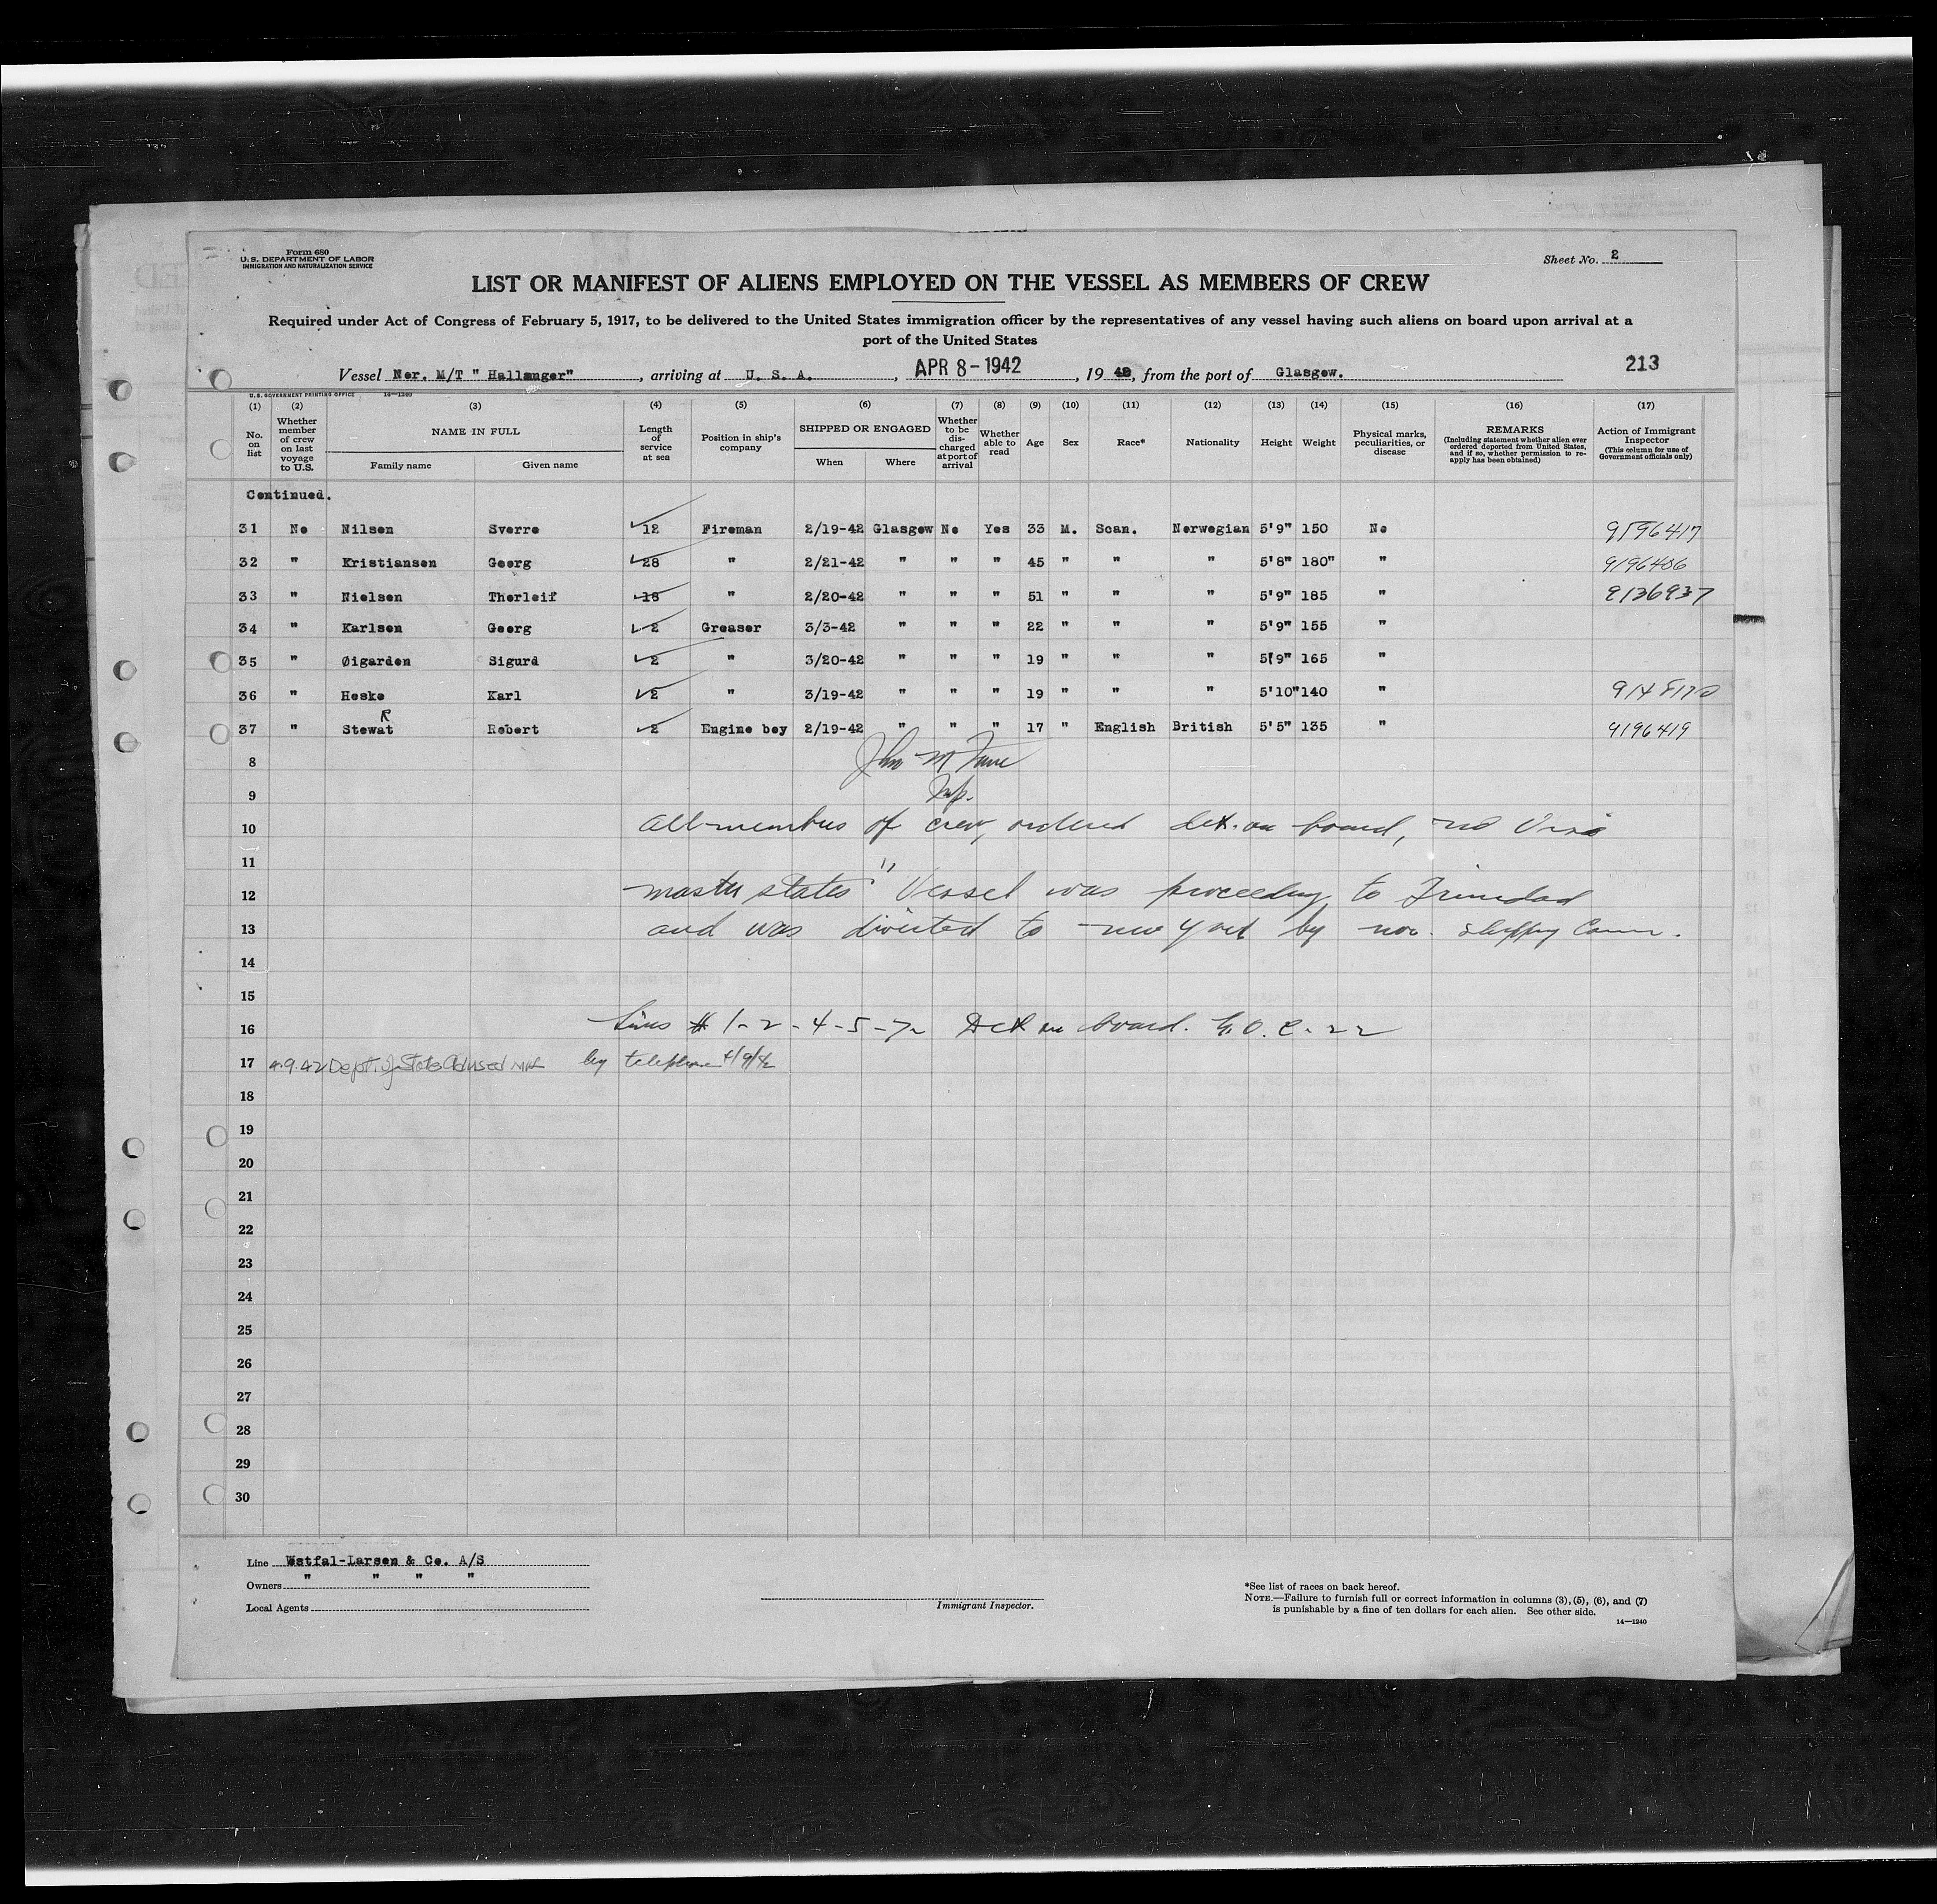 Form 680
U. S. DEPARTMENT OF LABOR
IMMIGRATION AND NATURALIZATION SERVICE
Sheet No. 2
LIST OR MANIFEST OF ALIENS EMPLOYED ON THE VESSEL AS MEMBERS OF CREW
Required under Act of Congress of February 5, 1917, to be delivered to the United States immigration officer by the representatives of any vessel having such aliens on board upon arrival at a
port of the United States
Vessel Nor. M/T " Hallanger" , arriving at U. S. A. , APR 8 - 1942 , 19 42, from the port of Glasgow. 213
U.S. GOVERNMENT PRINTING OFFICE 14—1240
(1) (2) (3) (4) (5) (6) (7) (8) (9) (10) (11) (12) (13) (14) (15) (16) (17)
No. on list
Whether member of crew on last voyage to U.S.
NAME IN FULL
Family name Given name
Length of service at sea
Position in ship's company
SHIPPED OR ENGAGED
When Where
Whether to be discharged at port of arrival
Whether able to read
Age
Sex
Race*
Nationality
Height
Weight
Physical marks, peculiarities, or disease
REMARKS
(Including statement whether alien ever ordered deported from United States, and if so, whether permission to reapply has been obtained)
Action of Immigrant Inspector
(This column for use of Government officials only)
Continued.
31 No Nilsen Sverre 12 Fireman 2/19-42 Glasgow No Yes 33 M. Scan. Norwegian 5'9" 150 No 9196417
32 " Kristiansen Georg 28 " 2/21-42 " " " 45 " " " 5'8" 180" " 9196406
33 " Nielsen Thorleif 18 " 2/20-42 " " " 51 " " " 5'9" 185 " 9136937
34 " Karlsen Georg 2 Greaser 3/3-42 " " " 22 " " " 5'9" 155 "
35 " Øigarden Sigurd 2 " 3/20-42 " " " 19 " " " 5'9" 165 "
36 " Heske Karl 2 " 3/19-42 " " " 19 " " " 5'10" 140 " 9148170
R
37 " Stewat Robert 2 Engine boy 2/19-42 " " " 17 " English British 5'5" 135 " 9196419
8 John M
9 Insp.
10 All members of crew, ordered det. on board, no Visa
11
12 master states " Vessel was proceeding to Trinidad
13 and was diverted to New York by nor. Shipping Comm.
14
15
16 Lines # 1-2-4-5-7- Det on board. G.O.C-22
17 4.9.42 Dept. of State Advised by telephone 4/9/42
18
19
20
21
22
23
24
25
26
27
28
29
30
Line Wstfal-Larsen & Co. A/S
Owners " " " "
Local Agents
Immigrant Inspector.
*See list of races on back hereof.
NOTE.—Failure to furnish full or correct information in columns (3), (5), (6), and (7)
is punishable by a fine of ten dollars for each alien. See other side.
14—1240